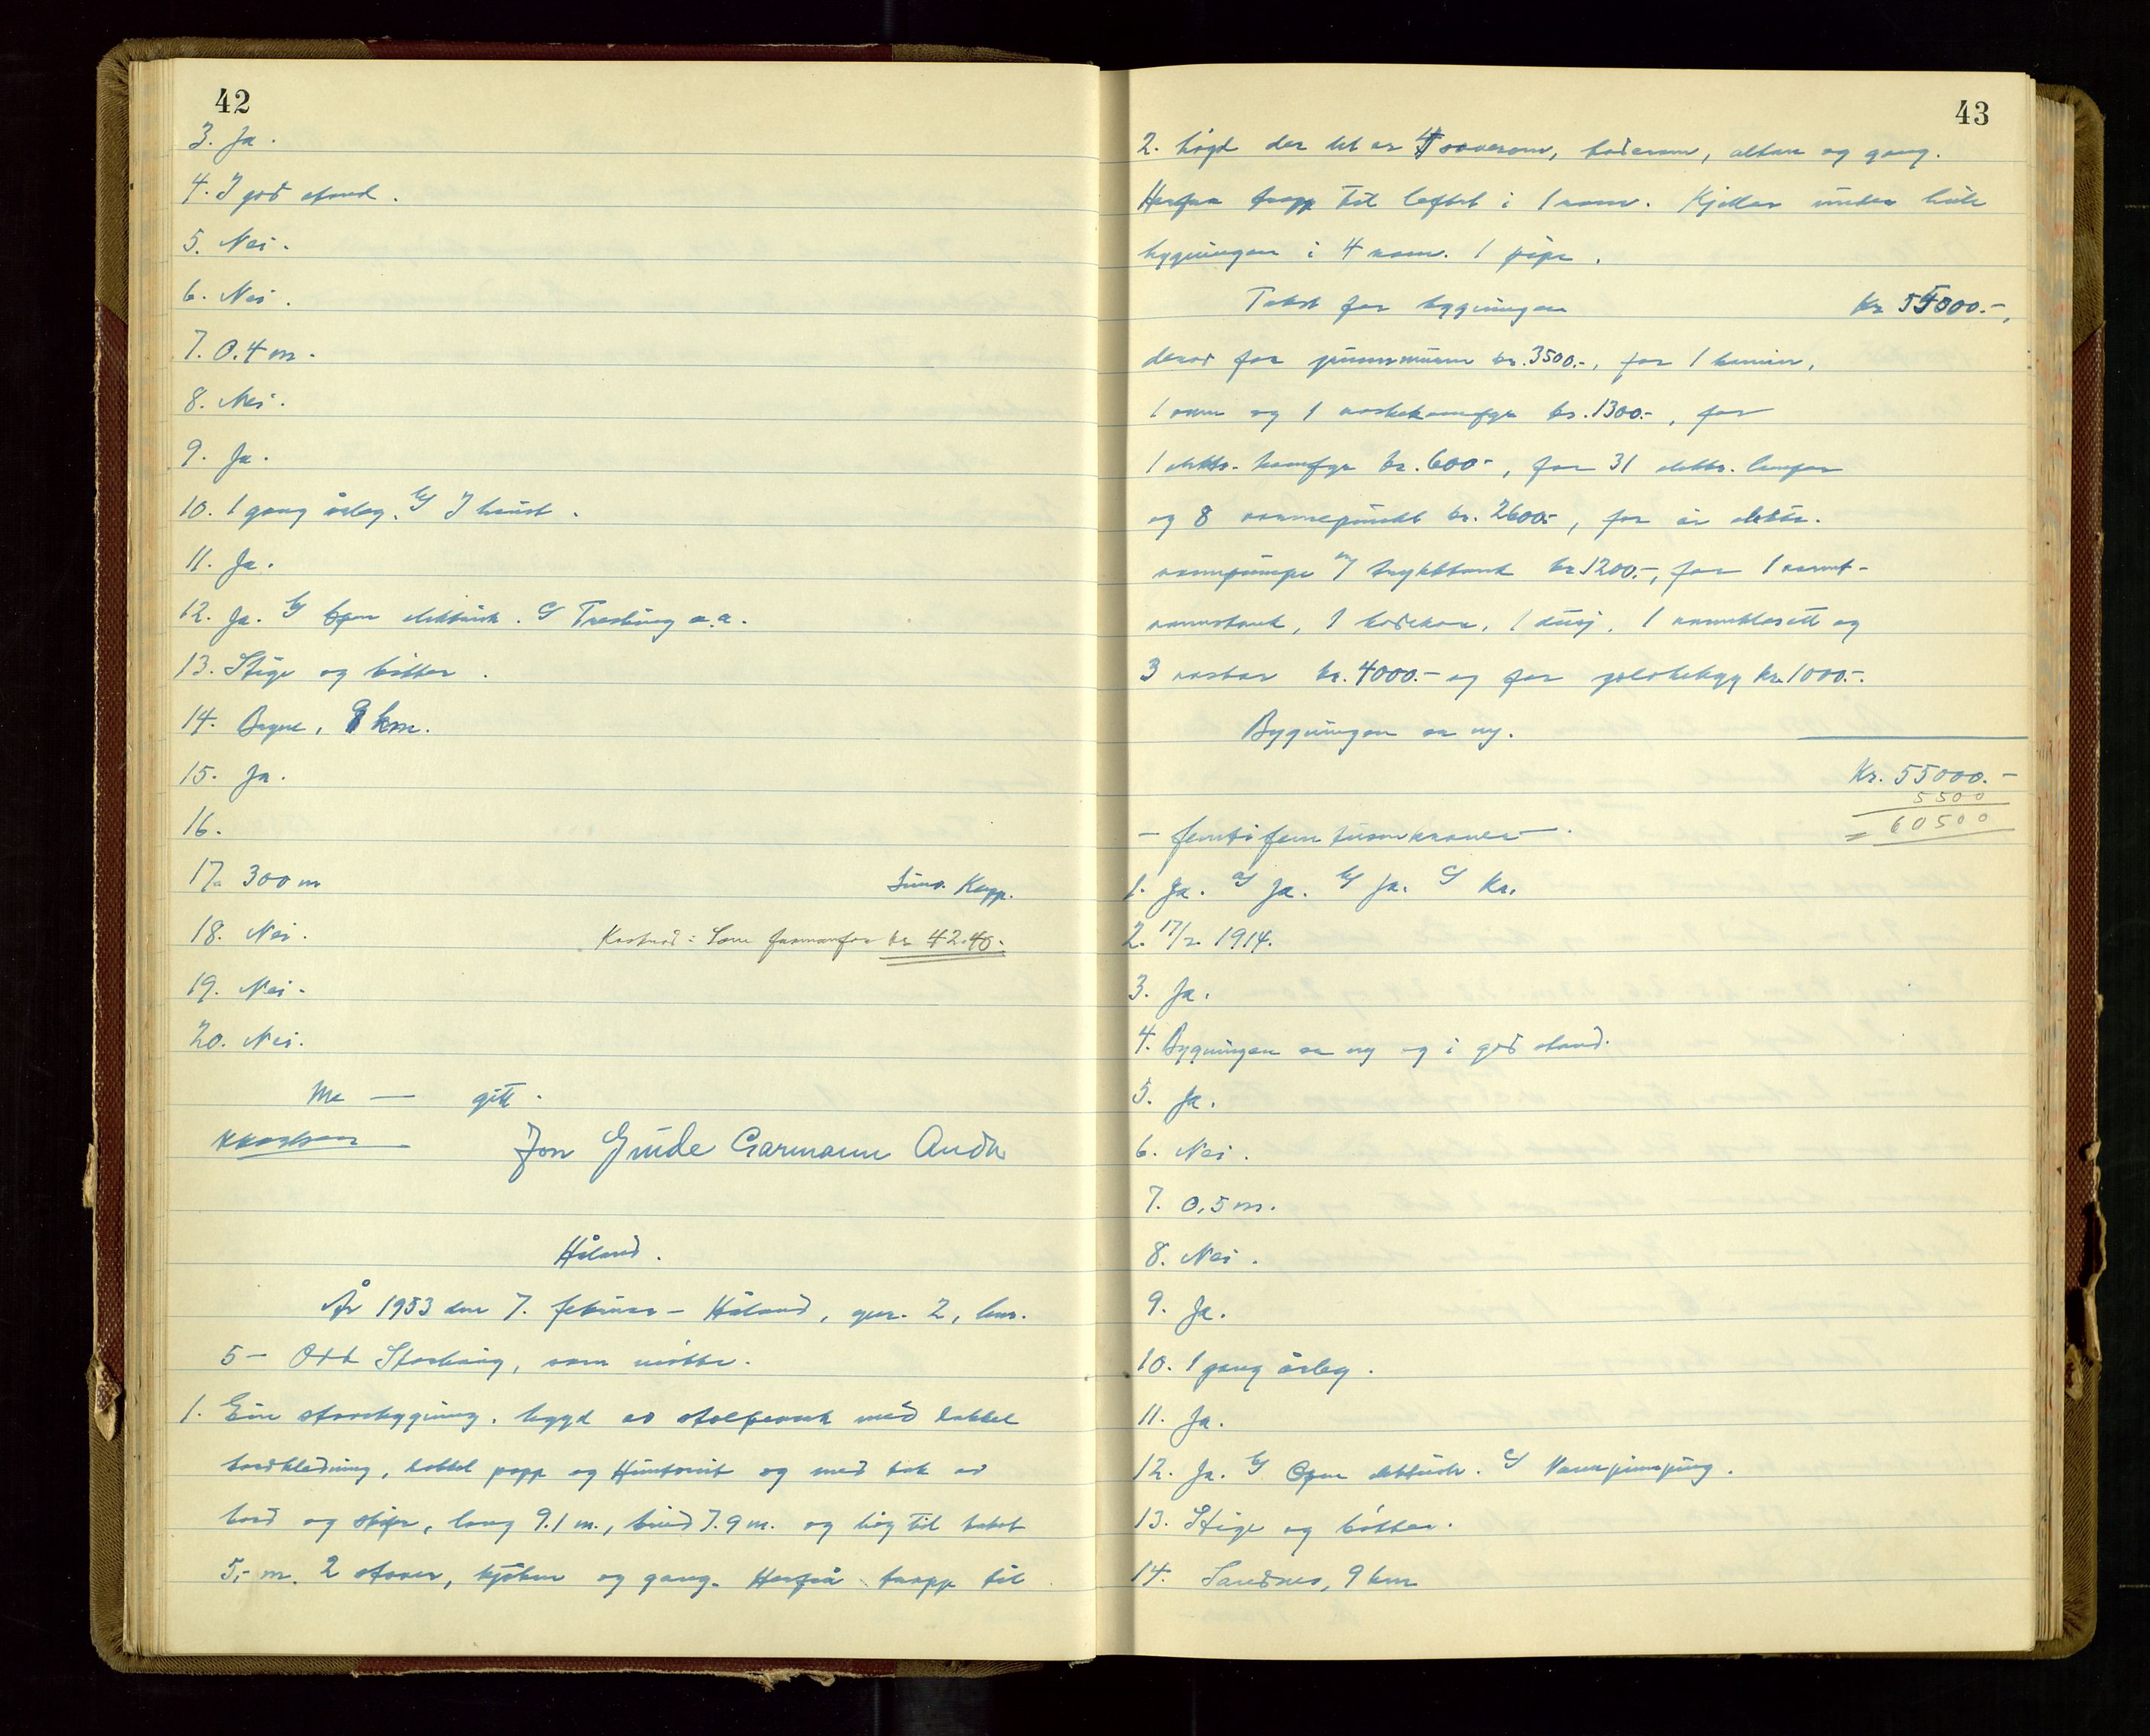 42
3. Ja.
4. I god stand.
5. Nei.
6. Nei.
7. 0.4 m.
8. Nei.
9. Ja.
10. 1 gang årleg. b/ I haust.
11. Ja.
12. Ja. b/ Open elektrisk. c/ Tresking o.a.
13. Stige og bøtter.
14. Bryne, 8 km.
15. Ja.
16.
17. 300 m
18. Nei. Kostnad: Som framanfor kr 42.40.
19. Nei.
20. Nei.
Me — gitt.
Jon Gude Garmann Anda
Håland.
År 1953 den 7. februar – Håland, gnr. 2, bnr.
5 – Odd Storhaug, som møtte.
1. Ein stovebygning, bygd av stolpeverk med dobbel
bordkledning, dobbel papp og Huntonit og med tak av
bord og skifer, lang 9.1 m., breid 7.9 m. og høg til taket
5,- m. 2 stover, kjøken og gang. Herfrå trapp til
43
2. høgd der det er 4 soverom, baderom, altan og gang.
Herfra trapp til loftet i 1 rom. Kjellar under heile
bygningen i 4 rom. 1 pipe.
Takst for bygningen Kr 55000.-,
derav for grunnmuren kr. 3500.-, for 1 kamin,
1 omn og 1 vaskekomfyr kr. 1300.-, for
1 elektr. komfyr kr. 600.-, for 31 elektr. lamper
og 8 varmepunkt kr. 2600.-, for ei elektr.
vasspumpe m/ trykktank kr 1200.-, for 1 varmt-
vannstank, 1 badekar, 1 dusj, 1 vannklosett og
3 vaskar kr. 4000.- og for golvbelegg kr. 1000.-.
Bygningen er ny.
Kr. 55000.-
5500
= 60500
- femtifem tusen kroner -.
1. Ja. a/ Ja. b/ Ja. c/ Kr.
2. 17/2. 1914.
3. Ja.
4. Bygningen er ny og i god stand.
5. Ja.
6. Nei.
7. 0,5 m.
8. Nei.
9. Ja.
10. 1 gang årleg.
11. Ja.
12. Ja. b/ Open elektrisk. c/ Vasspumping.
13. Stige og bøtter.
14. Sandnes, 9 km